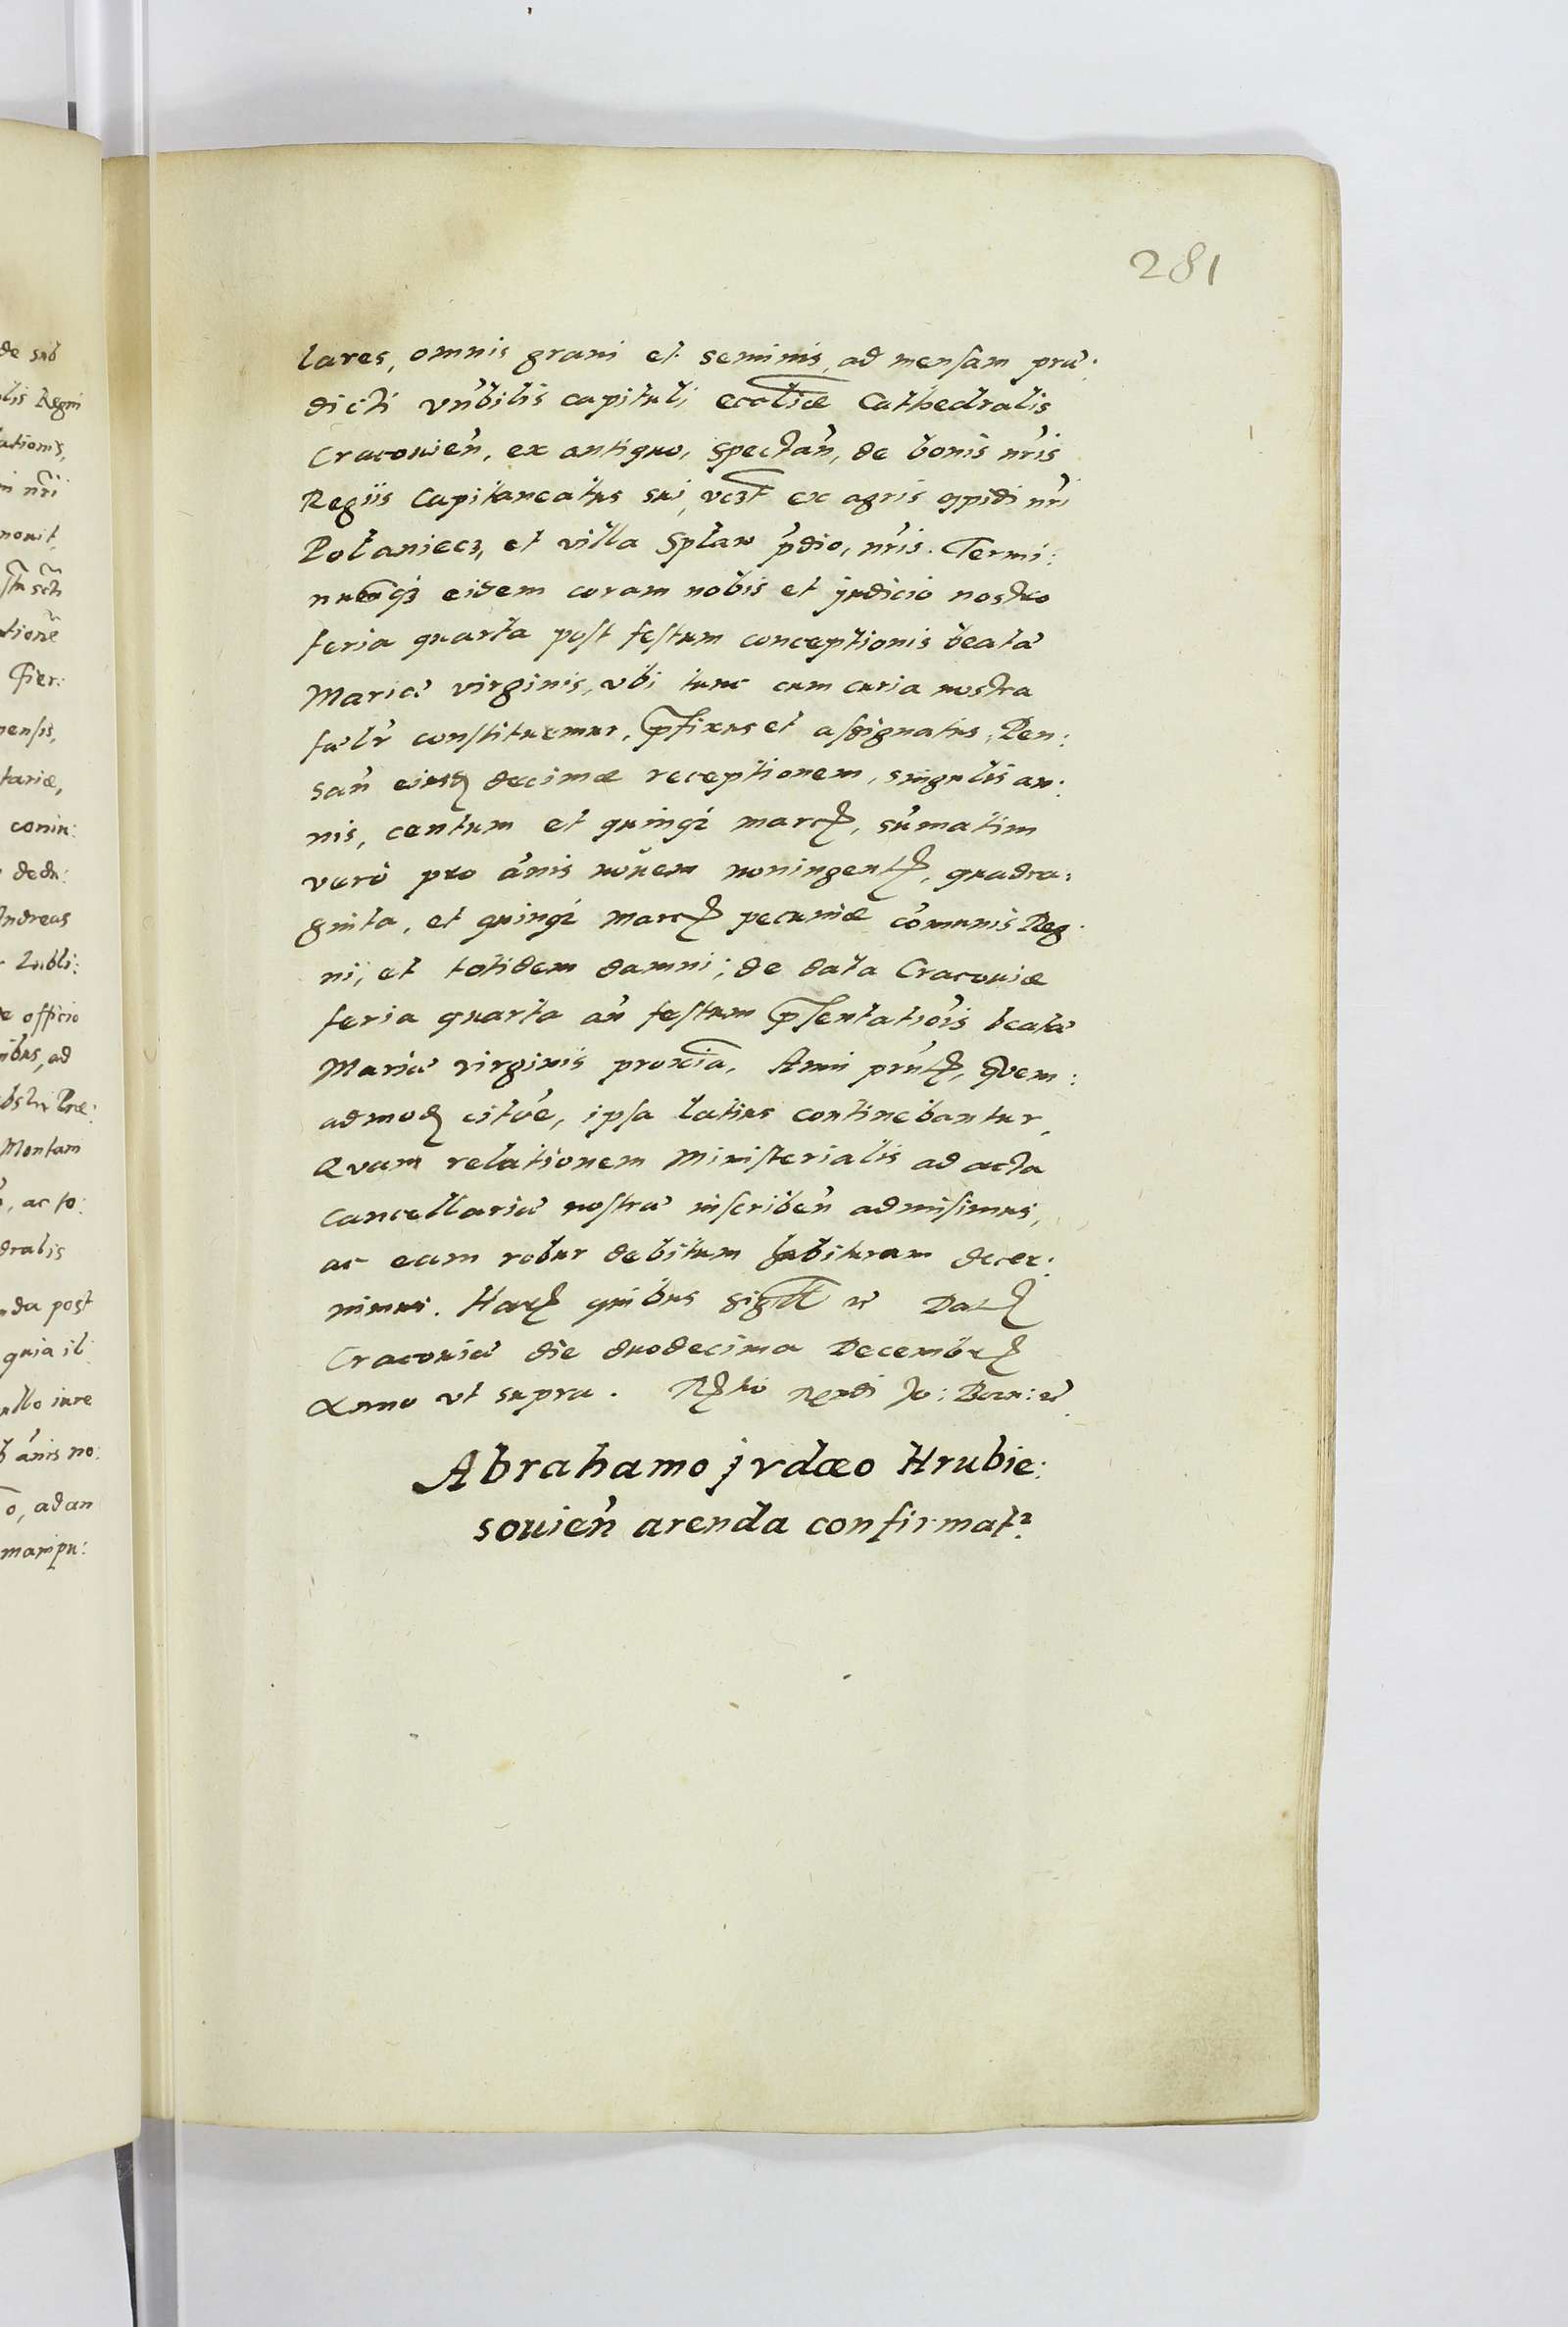 281
lares, omnis grani et seminis, ad mensam præ:
dicti vn̄bilis capituli eccliæ Cathedralis
Cracouien̄, ex antiquo, spectan̄, de bonis nr̄is
Regiis Capitaneatus sui, vcȝt ex agris oppidi nr̄i
Polaniecz, et villa Splaw p̄dio, nr̄is. Termi:
numqȝ eidem coram nobis et judicio nostro
feria quarta post festum conceptionis beatæ
Mariæ virginis, vbi tunc cum curia nostra
fælr̄ constituemur, p̄fixus et assignatus, Pen:
san̄ eiusd decimæ receptionem, singulis an:
nis, centum et quinqȝ marcȝ, sūmatim
verò pro ānis nouem noningentȝ, quadra:
ginta, et quinqȝ marcȝ pecuniæ cōmunis Reg:
ni, et totidem damni; de data Cracouiæ
feria quarta an̄ festum p̄sentatiōis beatæ
Mariæ virginis proxīa, Anni prn̄tȝ, Quem:
admod citōe, ipsa latius continebantur,
Quam relationem Ministerialis ad acta
Cancellariæ nostræ inscriben̄ admisimus,
ac eam robur debitum habituram decer:
nimus. Harȝ quibus sigll̄ Datȝ
Cracouiæ die duodecima Decembrȝ
Anno vt supra. Jo: Bor:
Abrahamo jvdæo Hrubie:
souien̄ arenda confirmatr
de sub
lis Regni
ationis,
m nr̄i
nouit
tionē
Fier:
nensis,
tariæ,
coniu:
dedu:
Andreas
Lubli:
de officio
nibus, ad
Præ:
Montam
, ac to:
dralis
nda post
quia il
ullo iure
ānis no:
o, ad an
manipu: